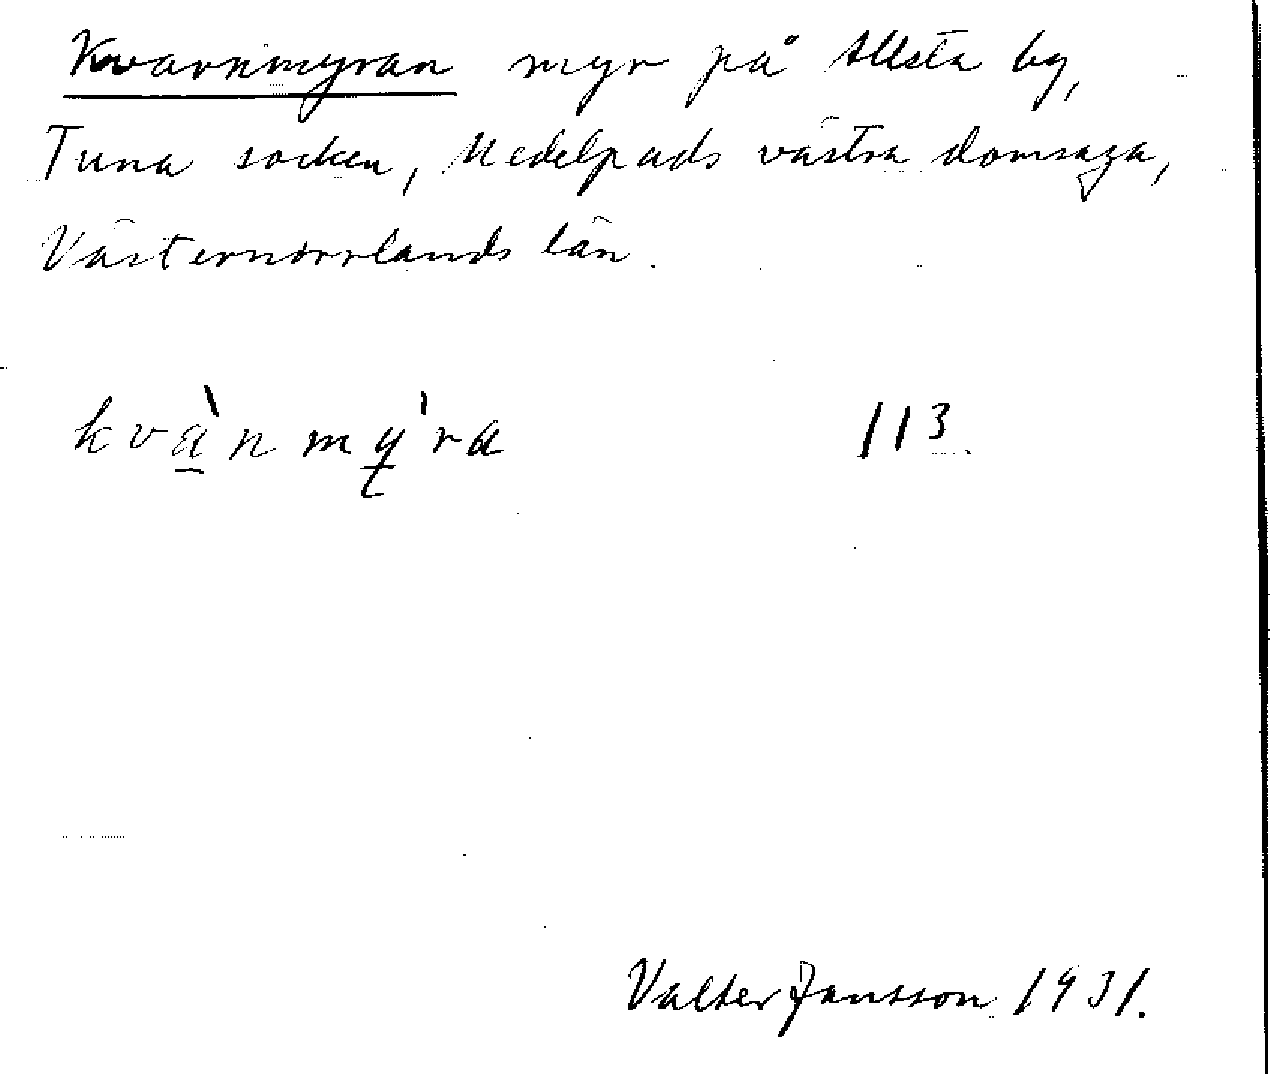 Kvarnmyran myr på Allsta by,
Tuna socken, Medelpads västra domsaga,
Västernorrlands län.
kvà̱nmy̱'ra 113.
Valter Jansson 1931.